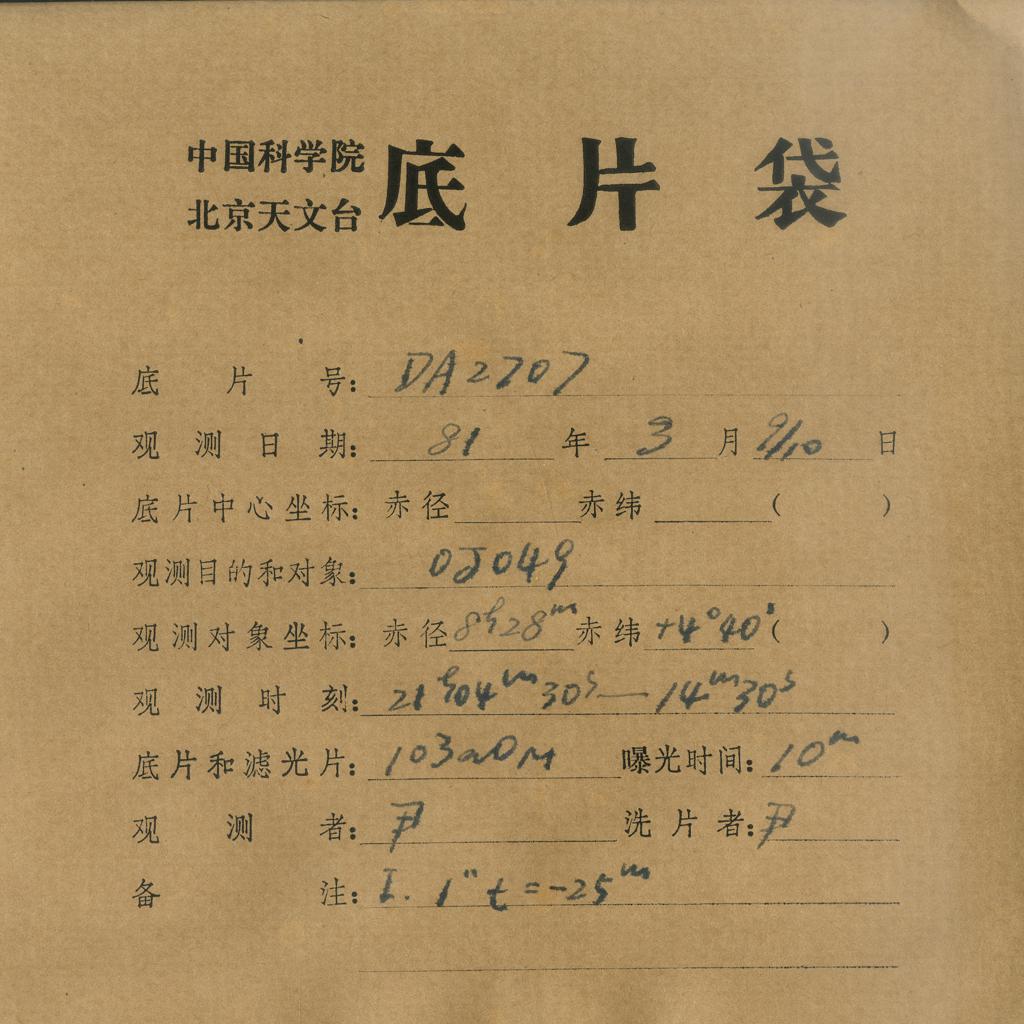 中国科学院
北京天文台
底片袋
底片号：DA2707
观测日期：81年3月9/10日
底片中心坐标：赤径 赤纬 （ ）
观测目的和对象：OJ049
观测对象坐标：赤径8h28m赤纬+4°40'（ ）
观测时刻：21h04m30s—14m30s
底片和滤光片：103aO 曝光时间：10m
观测者：尹 洗片者：尹
备注：I. 1" t=-25m